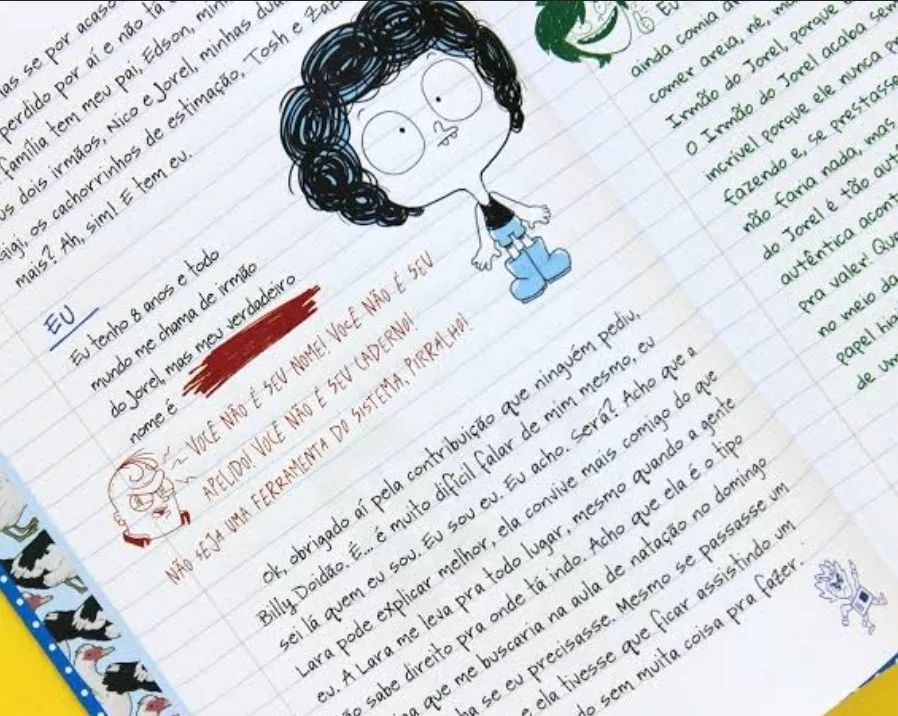 as se por acaso
perdido por aí e não tá
família tem meu pai, Edson, min
us dois irmãos, Nico e Jorel, minhas dua
gigi, os cachorrinhos de estimação, Tosh e Zaz
mais? Ah, sim! E tem eu.
EU
Eu tenho 8 anos e todo
mundo me chama de irmão
do Jorel, mas meu verdadeiro
nome é
VOCÊ NÃO É SEU NOME! VOCÊ NÃO É SEU
APELIDO! VOCÊ NÃO É SEU CADERNO!
NÃO SEJA UMA FERRAMENTA DO SISTEMA, PIRRALHO!
Ok, obrigado aí pela contribuição que ninguém pediu,
Billy Doidão. É... é muito difícil falar de mim mesmo, eu
sei lá quem eu sou. Eu sou eu. Eu acho. Será? Acho que a
Lara pode explicar melhor, ela convive mais comigo do que
eu. A Lara me leva pra todo lugar, mesmo quando a gente
ão sabe direito pra onde tá indo. Acho que ela é o tipo
na que me buscaria na aula de natação no domingo
ha se eu precisasse. Mesmo se passasse um
e ela tivesse que ficar assistindo um
do sem muita coisa pra fazer.
Eu
ainda comia a
comer areia, né, mo
Irmão do Jorel, porque
O Irmão do Jorel acaba sem
incrível porque ele nunca p
fazendo e, se prestasse
não faria nada, mas
do Jorel é tão aut
autêntica acont
pra valer! Que
no meio da
papel hig
de um